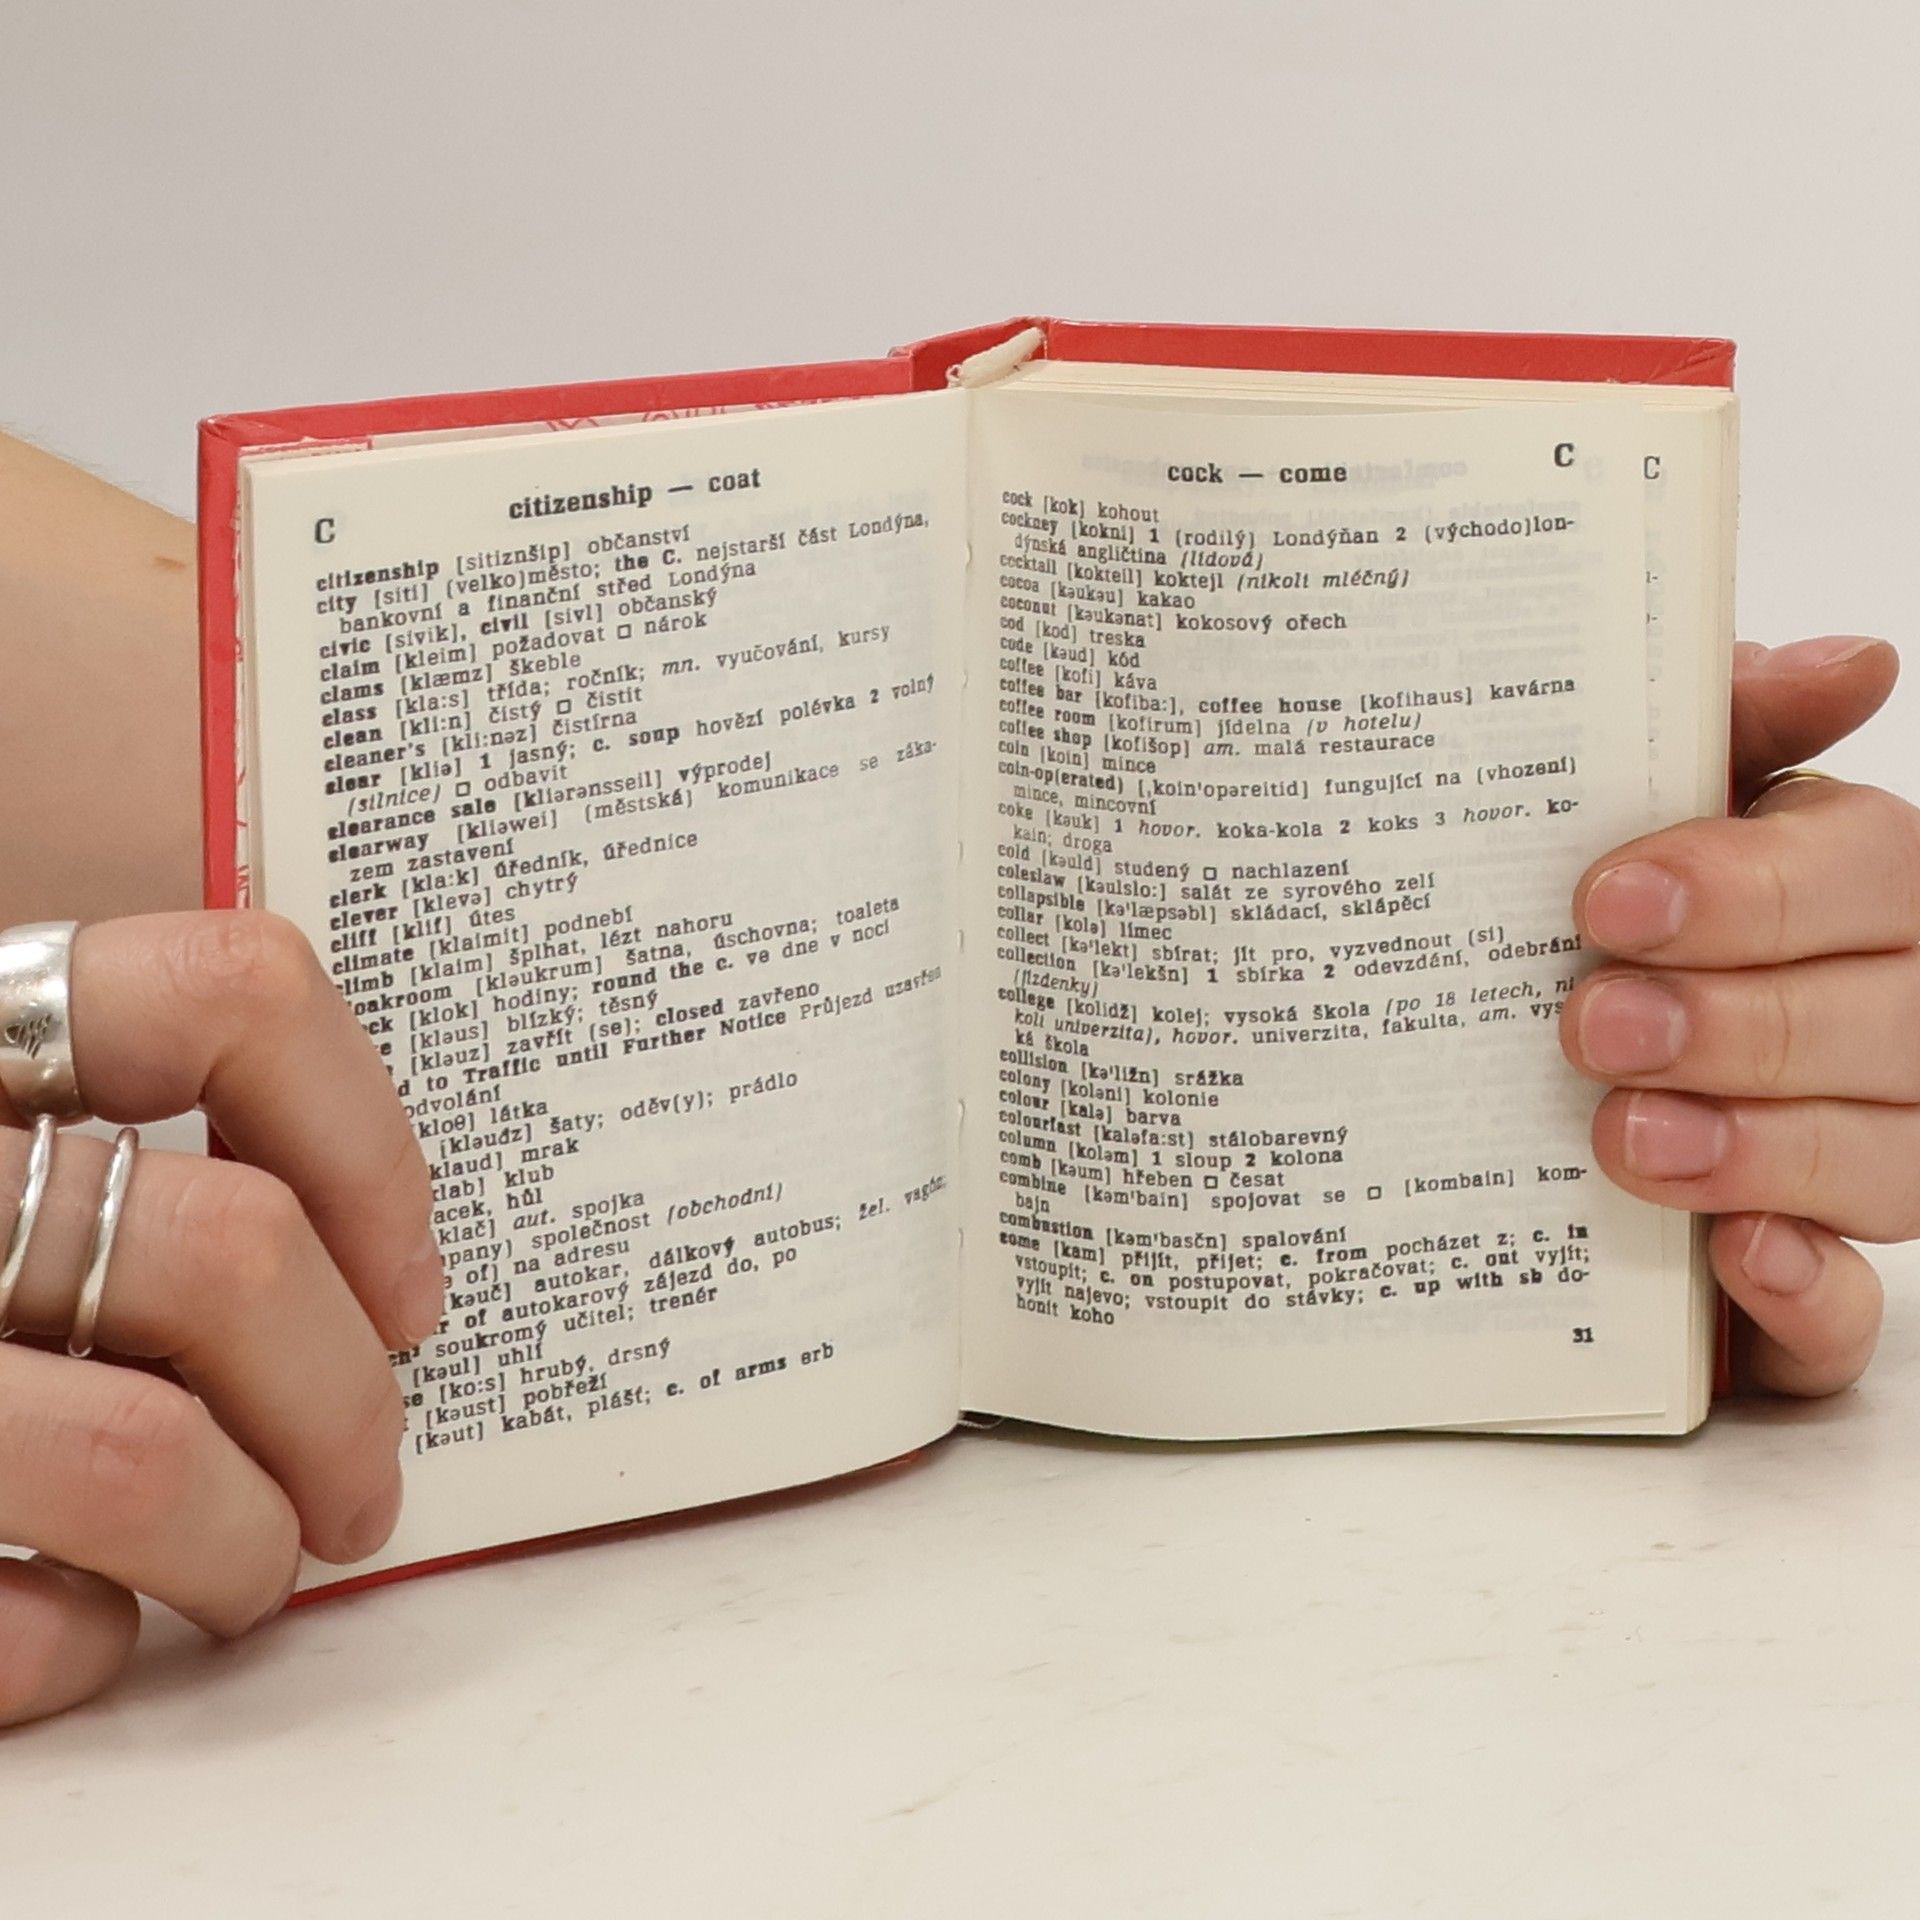 C
citizenship — coat
citizenship [sitiznšip] občanství
city [siti] (velko)město; the C. nejstarší část Londýna,
bankovní a finanční střed Londýna
civic [sivik], civil [sivl] občanský
claim [kleim] požadovat □ nárok
clams [klæmz] škeble
class [kla:s] třída; ročník; mn. vyučování, kursy
clean [kli:n] čistý □ čistit
cleaner's [kli:nəz] čistírna
clear [kliə] 1 jasný; c. soup hovězí polévka 2 volný
(silnice) □ odbavit
clearance sale [kliərənsseil] výprodej
clearway [kliəwei] (městská) komunikace se záka-
zem zastavení
clerk [kla:k] úředník, úřednice
clever [klevə] chytrý
cliff [klif] útes
climate [klaimit] podnebí
climb [klaim] šplhat, lézt nahoru
oakroom [kləukrum] šatna, úschovna; toaleta
ck [klok] hodiny; round the c. ve dne v noci
e [kləus] blízký; těsný
[kləuz] zavřít (se); closed zavřeno
d to Traffic until Further Notice Průjezd uzavřen
odvolání
[kloθ] látka
[kləudz] šaty; oděv(y); prádlo
klaud] mrak
klab] klub
acek, hůl
klač] aut. spojka
mpany) společnost (obchodní)
e of) na adresu
[kəuč] autokar, dálkový autobus; žel. vagón;
r of autokarový zájezd do, po
ch² soukromý učitel; trenér
[kəul] uhlí
se [ko:s] hrubý, drsný
t [kəust] pobřeží
[kəut] kabát, plášť; c. of arms erb
cock — come
C
cock [kok] kohout
cockney [kokni] 1 (rodilý) Londýňan 2 (východo)lon-
dýnská angličtina (lidová)
cocktail [kokteil] koktejl (nikoli mléčný)
cocoa [kəukəu] kakao
coconut [kəukənat] kokosový ořech
cod [kod] treska
code [kəud] kód
coffee [kofi] káva
coffee bar [kofiba:], coffee house [kofihaus] kavárna
coffee room [kofirum] jídelna (v hotelu)
coffee shop [kofišop] am. malá restaurace
coin [koin] mince
coin-op(erated) [ˌkoin'opəreitid] fungující na (vhození)
mince, mincovní
coke [kəuk] 1 hovor. koka-kola 2 koks 3 hovor. ko-
kain; droga
cold [kəuld] studený □ nachlazení
coleslaw [kəulslo:] salát ze syrového zelí
collapsible [kə'læpsəbl] skládací, sklápěcí
collar [kolə] límec
collect [kə'lekt] sbírat; jít pro, vyzvednout (si)
collection [kə'lekšn] 1 sbírka 2 odevzdání, odebrání
(jízdenky)
college [kolidž] kolej; vysoká škola (po 18 letech, ni
koli univerzita), hovor. univerzita, fakulta, am. vys
ká škola
collision [kə'ližn] srážka
colony [koləni] kolonie
colour [kalə] barva
colourfast [kaləfa:st] stálobarevný
column [koləm] 1 sloup 2 kolona
comb [kəum] hřeben □ česat
combine [kəm'bain] spojovat se □ [kombain] kom-
bajn
combustion [kəm'basčn] spalování
come [kam] přijít, přijet; c. from pocházet z; c. in
vstoupit; c. on postupovat, pokračovat; c. out vyjít;
vyjít najevo; vstoupit do stávky; c. up with sb do-
honit koho
31
C